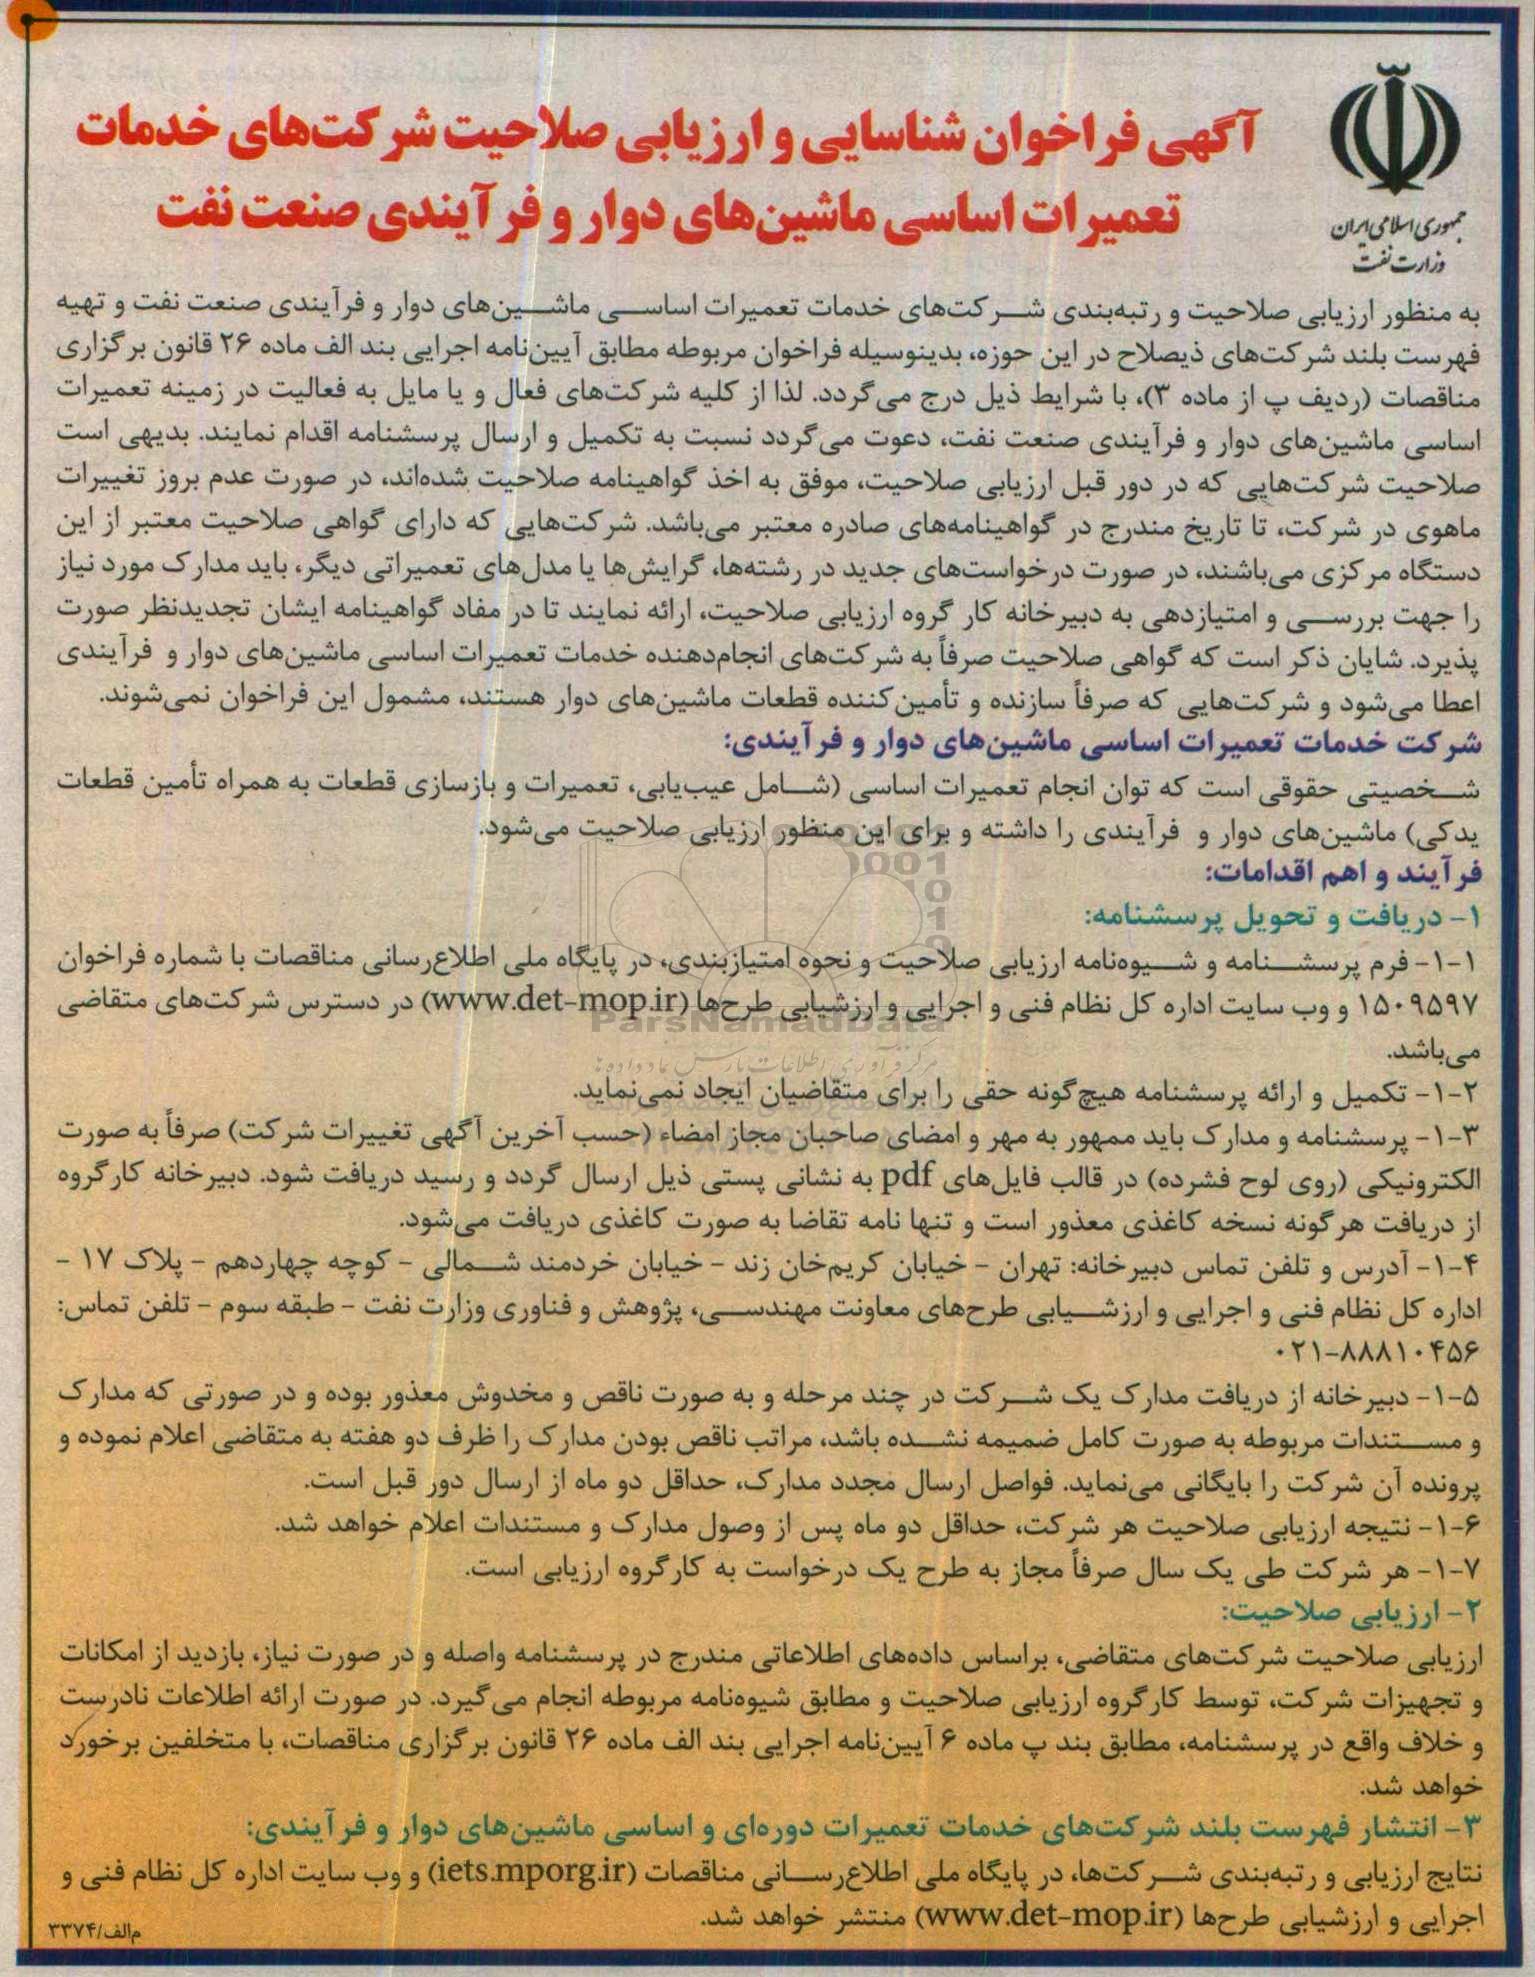 جمهوری اسلامی ایران
وزارت نفت
آگهی فراخوان شناسایی و ارزیابی صلاحیت شرکت‌های خدمات
تعمیرات اساسی ماشین‌های دوار و فرآیندی صنعت نفت
به منظور ارزیابی صلاحیت و رتبه‌بندی شرکت‌های خدمات تعمیرات اساسی ماشین‌های دوار و فرآیندی صنعت نفت و تهیه
فهرست بلند شرکت‌های ذیصلاح در این حوزه، بدینوسیله فراخوان مربوطه مطابق آیین‌نامه اجرایی بند الف ماده ۲۶ قانون برگزاری
مناقصات (ردیف پ از ماده ۳)، با شرایط ذیل درج می‌گردد. لذا از کلیه شرکت‌های فعال و یا مایل به فعالیت در زمینه تعمیرات
اساسی ماشین‌های دوار و فرآیندی صنعت نفت، دعوت می‌گردد نسبت به تکمیل و ارسال پرسشنامه اقدام نمایند. بدیهی است
صلاحیت شرکت‌هایی که در دور قبل ارزیابی صلاحیت، موفق به اخذ گواهینامه صلاحیت شده‌اند، در صورت عدم بروز تغییرات
ماهوی در شرکت، تا تاریخ مندرج در گواهینامه‌های صادره معتبر می‌باشد. شرکت‌هایی که دارای گواهی صلاحیت معتبر از این
دستگاه مرکزی می‌باشند، در صورت درخواست‌های جدید در رشته‌ها، گرایش‌ها یا مدل‌های تعمیراتی دیگر، باید مدارک مورد نیاز
را جهت بررسی و امتیازدهی به دبیرخانه کار گروه ارزیابی صلاحیت، ارائه نمایند تا در مفاد گواهینامه ایشان تجدیدنظر صورت
پذیرد. شایان ذکر است که گواهی صلاحیت صرفاً به شرکت‌های انجام‌دهنده خدمات تعمیرات اساسی ماشین‌های دوار و فرآیندی
اعطا می‌شود و شرکت‌هایی که صرفاً سازنده و تأمین‌کننده قطعات ماشین‌های دوار هستند، مشمول این فراخوان نمی‌شوند.
شرکت خدمات تعمیرات اساسی ماشین‌های دوار و فرآیندی:
شخصیتی حقوقی است که توان انجام تعمیرات اساسی (شامل عیب‌یابی، تعمیرات و بازسازی قطعات به همراه تأمین قطعات
یدکی) ماشین‌های دوار و فرآیندی را داشته و برای این منظور ارزیابی صلاحیت می‌شود.
فرآیند و اهم اقدامات:
۱- دریافت و تحویل پرسشنامه:
۱-۱- فرم پرسشنامه و شیوه‌نامه ارزیابی صلاحیت و نحوه امتیازبندی، در پایگاه ملی اطلاع‌رسانی مناقصات با شماره فراخوان
۱۵۰۹۵۹۷ و وب سایت اداره کل نظام فنی و اجرایی و ارزشیابی طرح‌ها (www.det-mop.ir) در دسترس شرکت‌های متقاضی
می‌باشد.
۱-۲- تکمیل و ارائه پرسشنامه هیچ‌گونه حقی را برای متقاضیان ایجاد نمی‌نماید.
۱-۳- پرسشنامه و مدارک باید ممهور به مهر و امضای صاحبان مجاز امضاء (حسب آخرین آگهی تغییرات شرکت) صرفاً به صورت
الکترونیکی (روی لوح فشرده) در قالب فایل‌های pdf به نشانی پستی ذیل ارسال گردد و رسید دریافت شود. دبیرخانه کارگروه
از دریافت هرگونه نسخه کاغذی معذور است و تنها نامه تقاضا به صورت کاغذی دریافت می‌شود.
۱-۴- آدرس و تلفن تماس دبیرخانه: تهران - خیابان کریم‌خان زند - خیابان خردمند شمالی - کوچه چهاردهم - پلاک ۱۷ -
اداره کل نظام فنی و اجرایی و ارزشیابی طرح‌های معاونت مهندسی، پژوهش و فناوری وزارت نفت - طبقه سوم - تلفن تماس:
۰۲۱-۸۸۸۱۰۴۵۶
۱-۵- دبیرخانه از دریافت مدارک یک شرکت در چند مرحله و به صورت ناقص و مخدوش معذور بوده و در صورتی که مدارک
و مستندات مربوطه به صورت کامل ضمیمه نشده باشد، مراتب ناقص بودن مدارک را ظرف دو هفته به متقاضی اعلام نموده و
پرونده آن شرکت را بایگانی می‌نماید. فواصل ارسال مجدد مدارک، حداقل دو ماه از ارسال دور قبل است.
۱-۶- نتیجه ارزیابی صلاحیت هر شرکت، حداقل دو ماه پس از وصول مدارک و مستندات اعلام خواهد شد.
۱-۷- هر شرکت طی یک سال صرفاً مجاز به طرح یک درخواست به کارگروه ارزیابی است.
۲- ارزیابی صلاحیت:
ارزیابی صلاحیت شرکت‌های متقاضی، براساس داده‌های اطلاعاتی مندرج در پرسشنامه واصله و در صورت نیاز، بازدید از امکانات
و تجهیزات شرکت، توسط کارگروه ارزیابی صلاحیت و مطابق شیوه‌نامه مربوطه انجام می‌گیرد. در صورت ارائه اطلاعات نادرست
و خلاف واقع در پرسشنامه، مطابق بند پ ماده ۶ آیین‌نامه اجرایی بند الف ماده ۲۶ قانون برگزاری مناقصات، با متخلفین برخورد
خواهد شد.
۳- انتشار فهرست بلند شرکت‌های خدمات تعمیرات دوره‌ای و اساسی ماشین‌های دوار و فرآیندی:
نتایج ارزیابی و رتبه‌بندی شرکت‌ها، در پایگاه ملی اطلاع‌رسانی مناقصات (iets.mporg.ir) و وب سایت اداره کل نظام فنی و
اجرایی و ارزشیابی طرح‌ها (www.det-mop.ir) منتشر خواهد شد.
م‌الف/۳۳۷۴
ParsNamadData